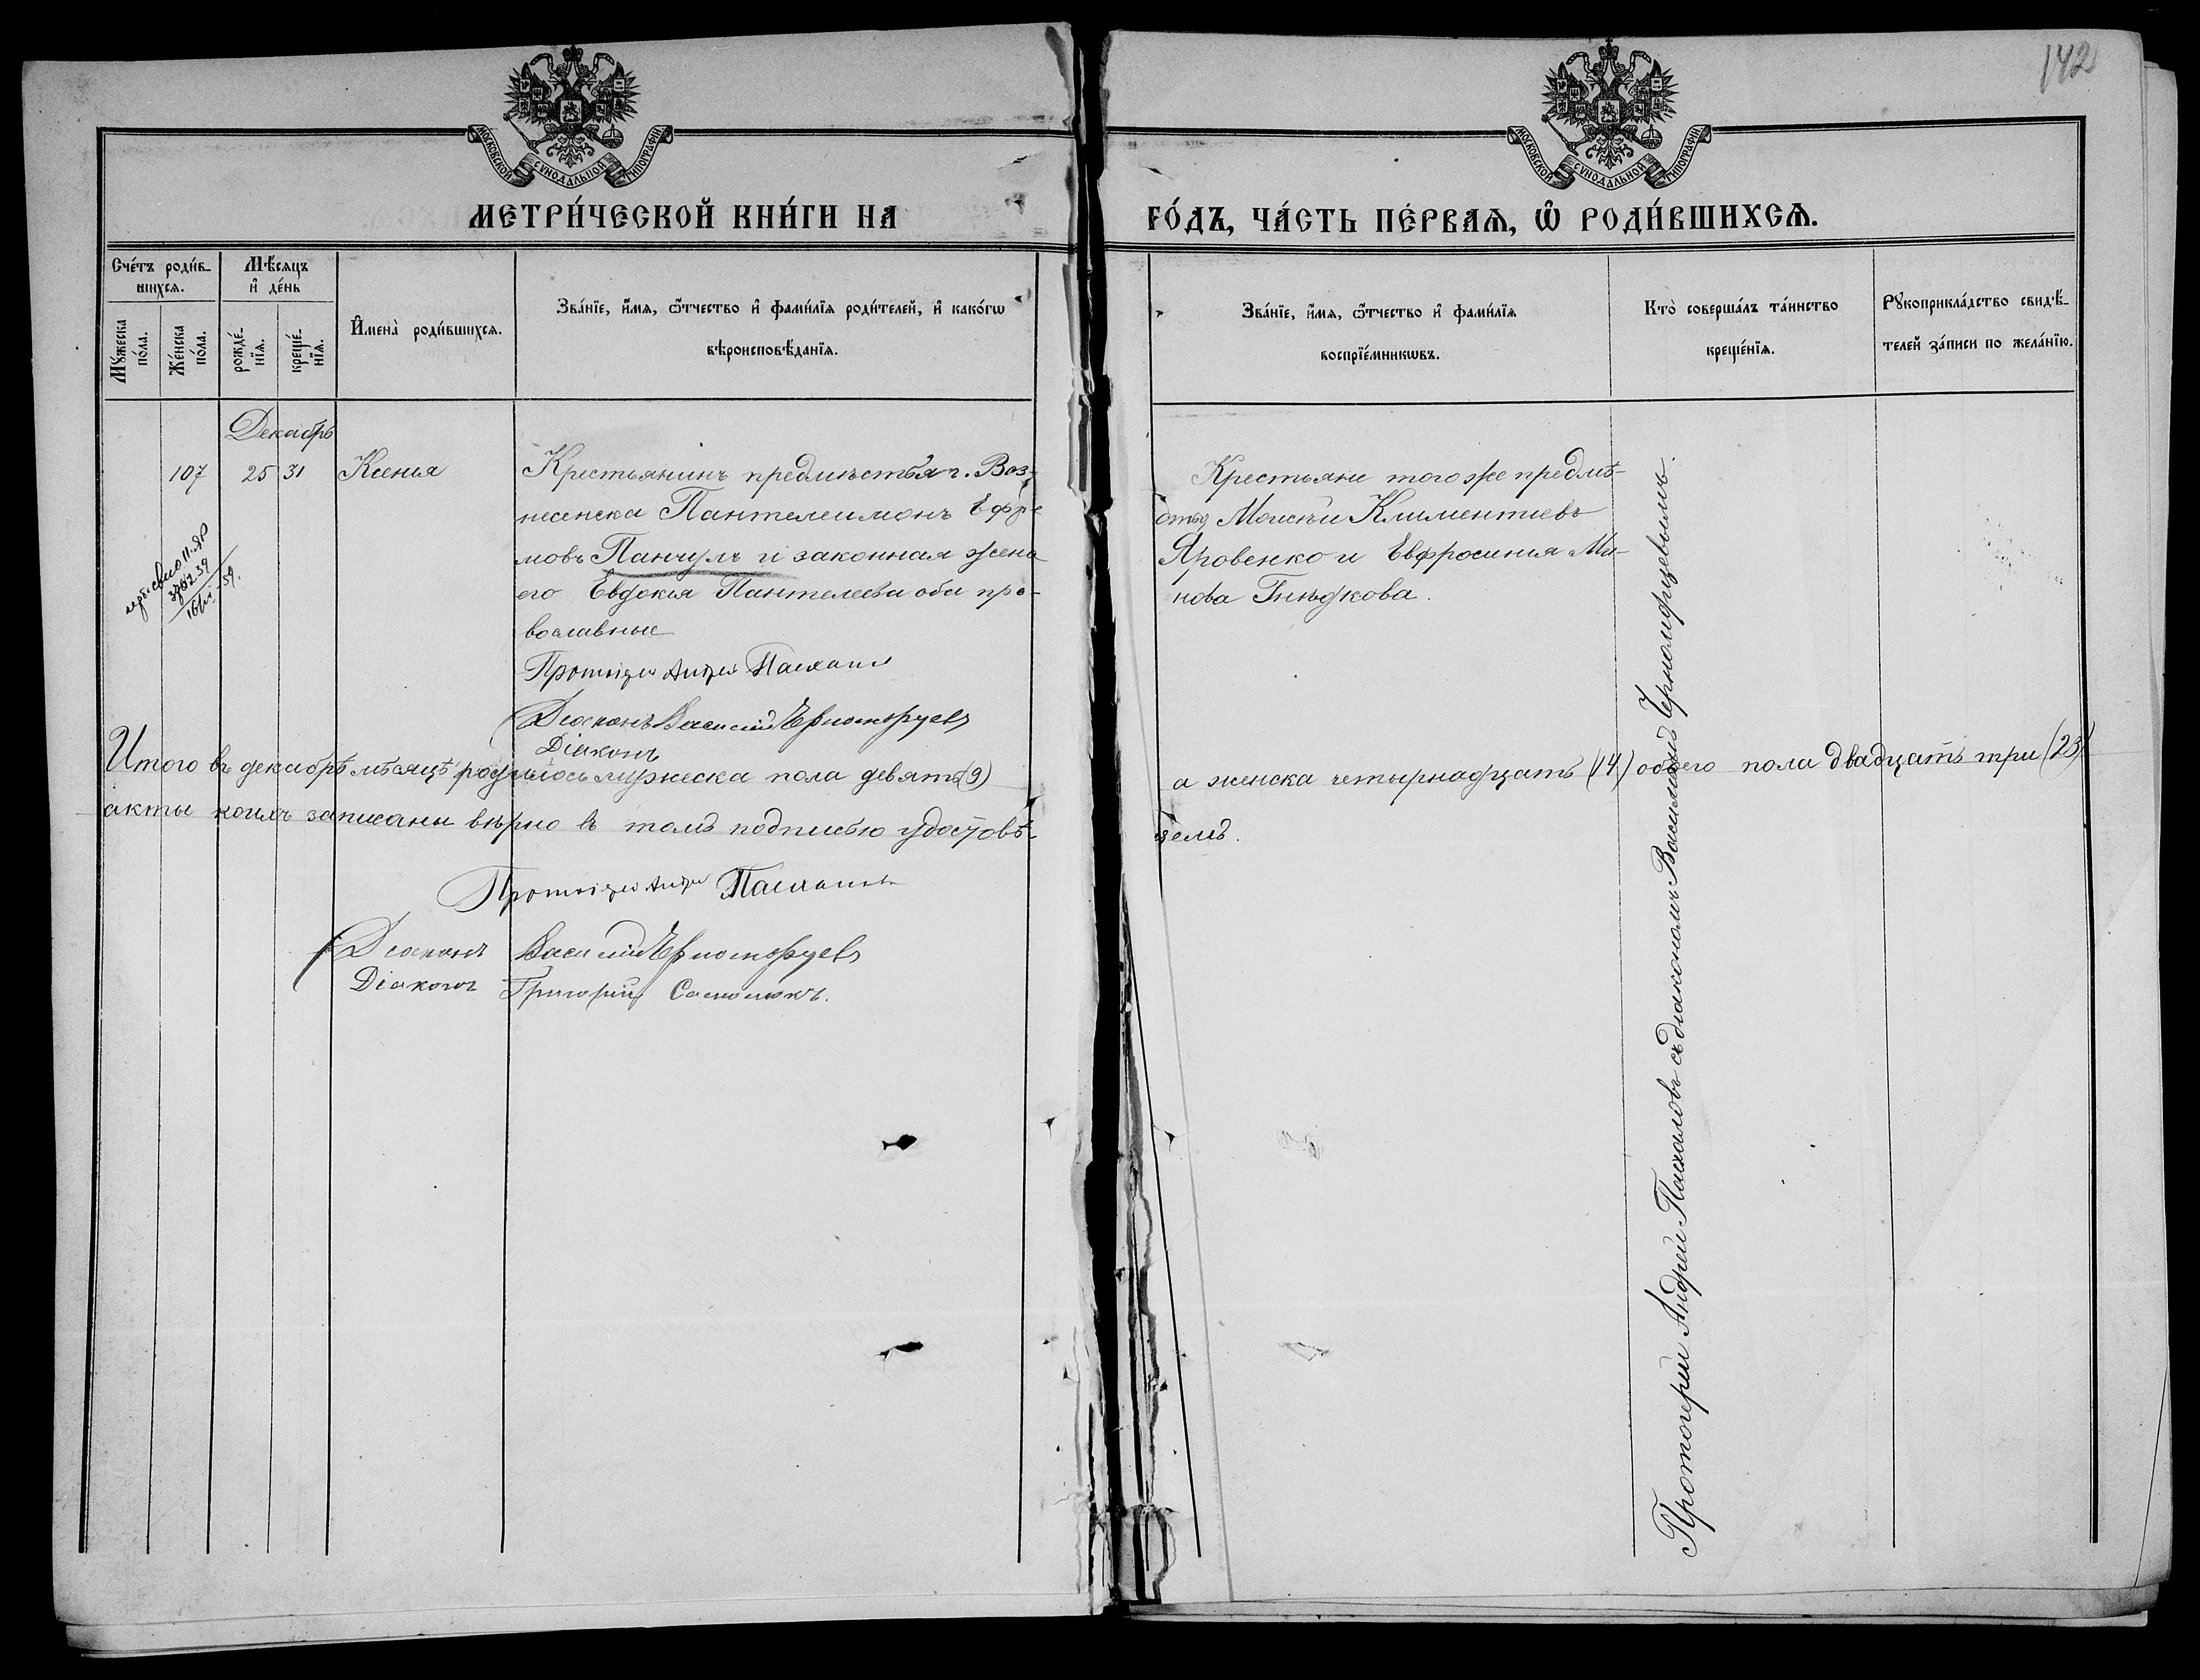 142
МОСКОВСКОЙ СѴНОДАЛЬНОЙ ТИПОГРАФІИ
МОСКОВСКОЙ СѴНОДАЛЬНОЙ ТИПОГРАФІИ
МЕТРИ́ЧЕСКОЙ КНИ́ГИ НА
ГО́ДЪ, ЧА́СТЬ ПЕ́РВАѦ, Ѡ҆ РОДИ́ВШИХСѦ.
Сче́тъ роди́в-
шихсѧ.
Мꙋ́жеска по́ла.
Же́нска по́ла.
Мѣ́сѧцъ
и҆ де́нь
рожде́-
нїѧ.
креще́-
нїѧ.
И҆мена̀ роди́вшихсѧ.
Зва́нїе, и҆́мѧ, ѻ҆́тчество и҆ фами́лїѧ роди́телей, и҆ како́гѡ
вѣроисповѣ́данїѧ.
Зва́нїе, и҆́мѧ, ѻ҆́тчество и҆ фами́лїѧ
воспрїе́мникѡвъ.
Кто̀ соверша́лъ та́инство
креще́нїѧ.
Рꙋкоприкла́дство свидѣ́-
телей за́писи по жела́нїю.
Декабрь
107 25 31 Ксенія
Крестьянинъ предмѣстья г. Воз-
несенска Пантелеимонъ Ефре
мовъ Панчулъ и законная жена
его Евдокія Пантелеева оба пра-
вославные
Протоіерей Андрей Пасхаловъ
Діаконъ Василій Черноморуцевъ
Діаконъ
Крестьяне того же предмѣ-
стья Моисѣй Климентіевъ
Яровенко и Евфросинія Ми-
нова Гнѣдкова.
Протоіерей Андрей Пасхаловъ съ діакономъ Василіемъ
Итого въ декабрѣ мѣсяцѣ родилось мужеска пола девять (9)
а женска четырнадцать (14) обоего пола двадцать три (23)
акты коихъ записаны вѣрно въ томъ подписью удостовѣ-
ряемъ.
Протоіерей Андрей Пасхаловъ
Діаконъ Василій
Діаконъ Григорій